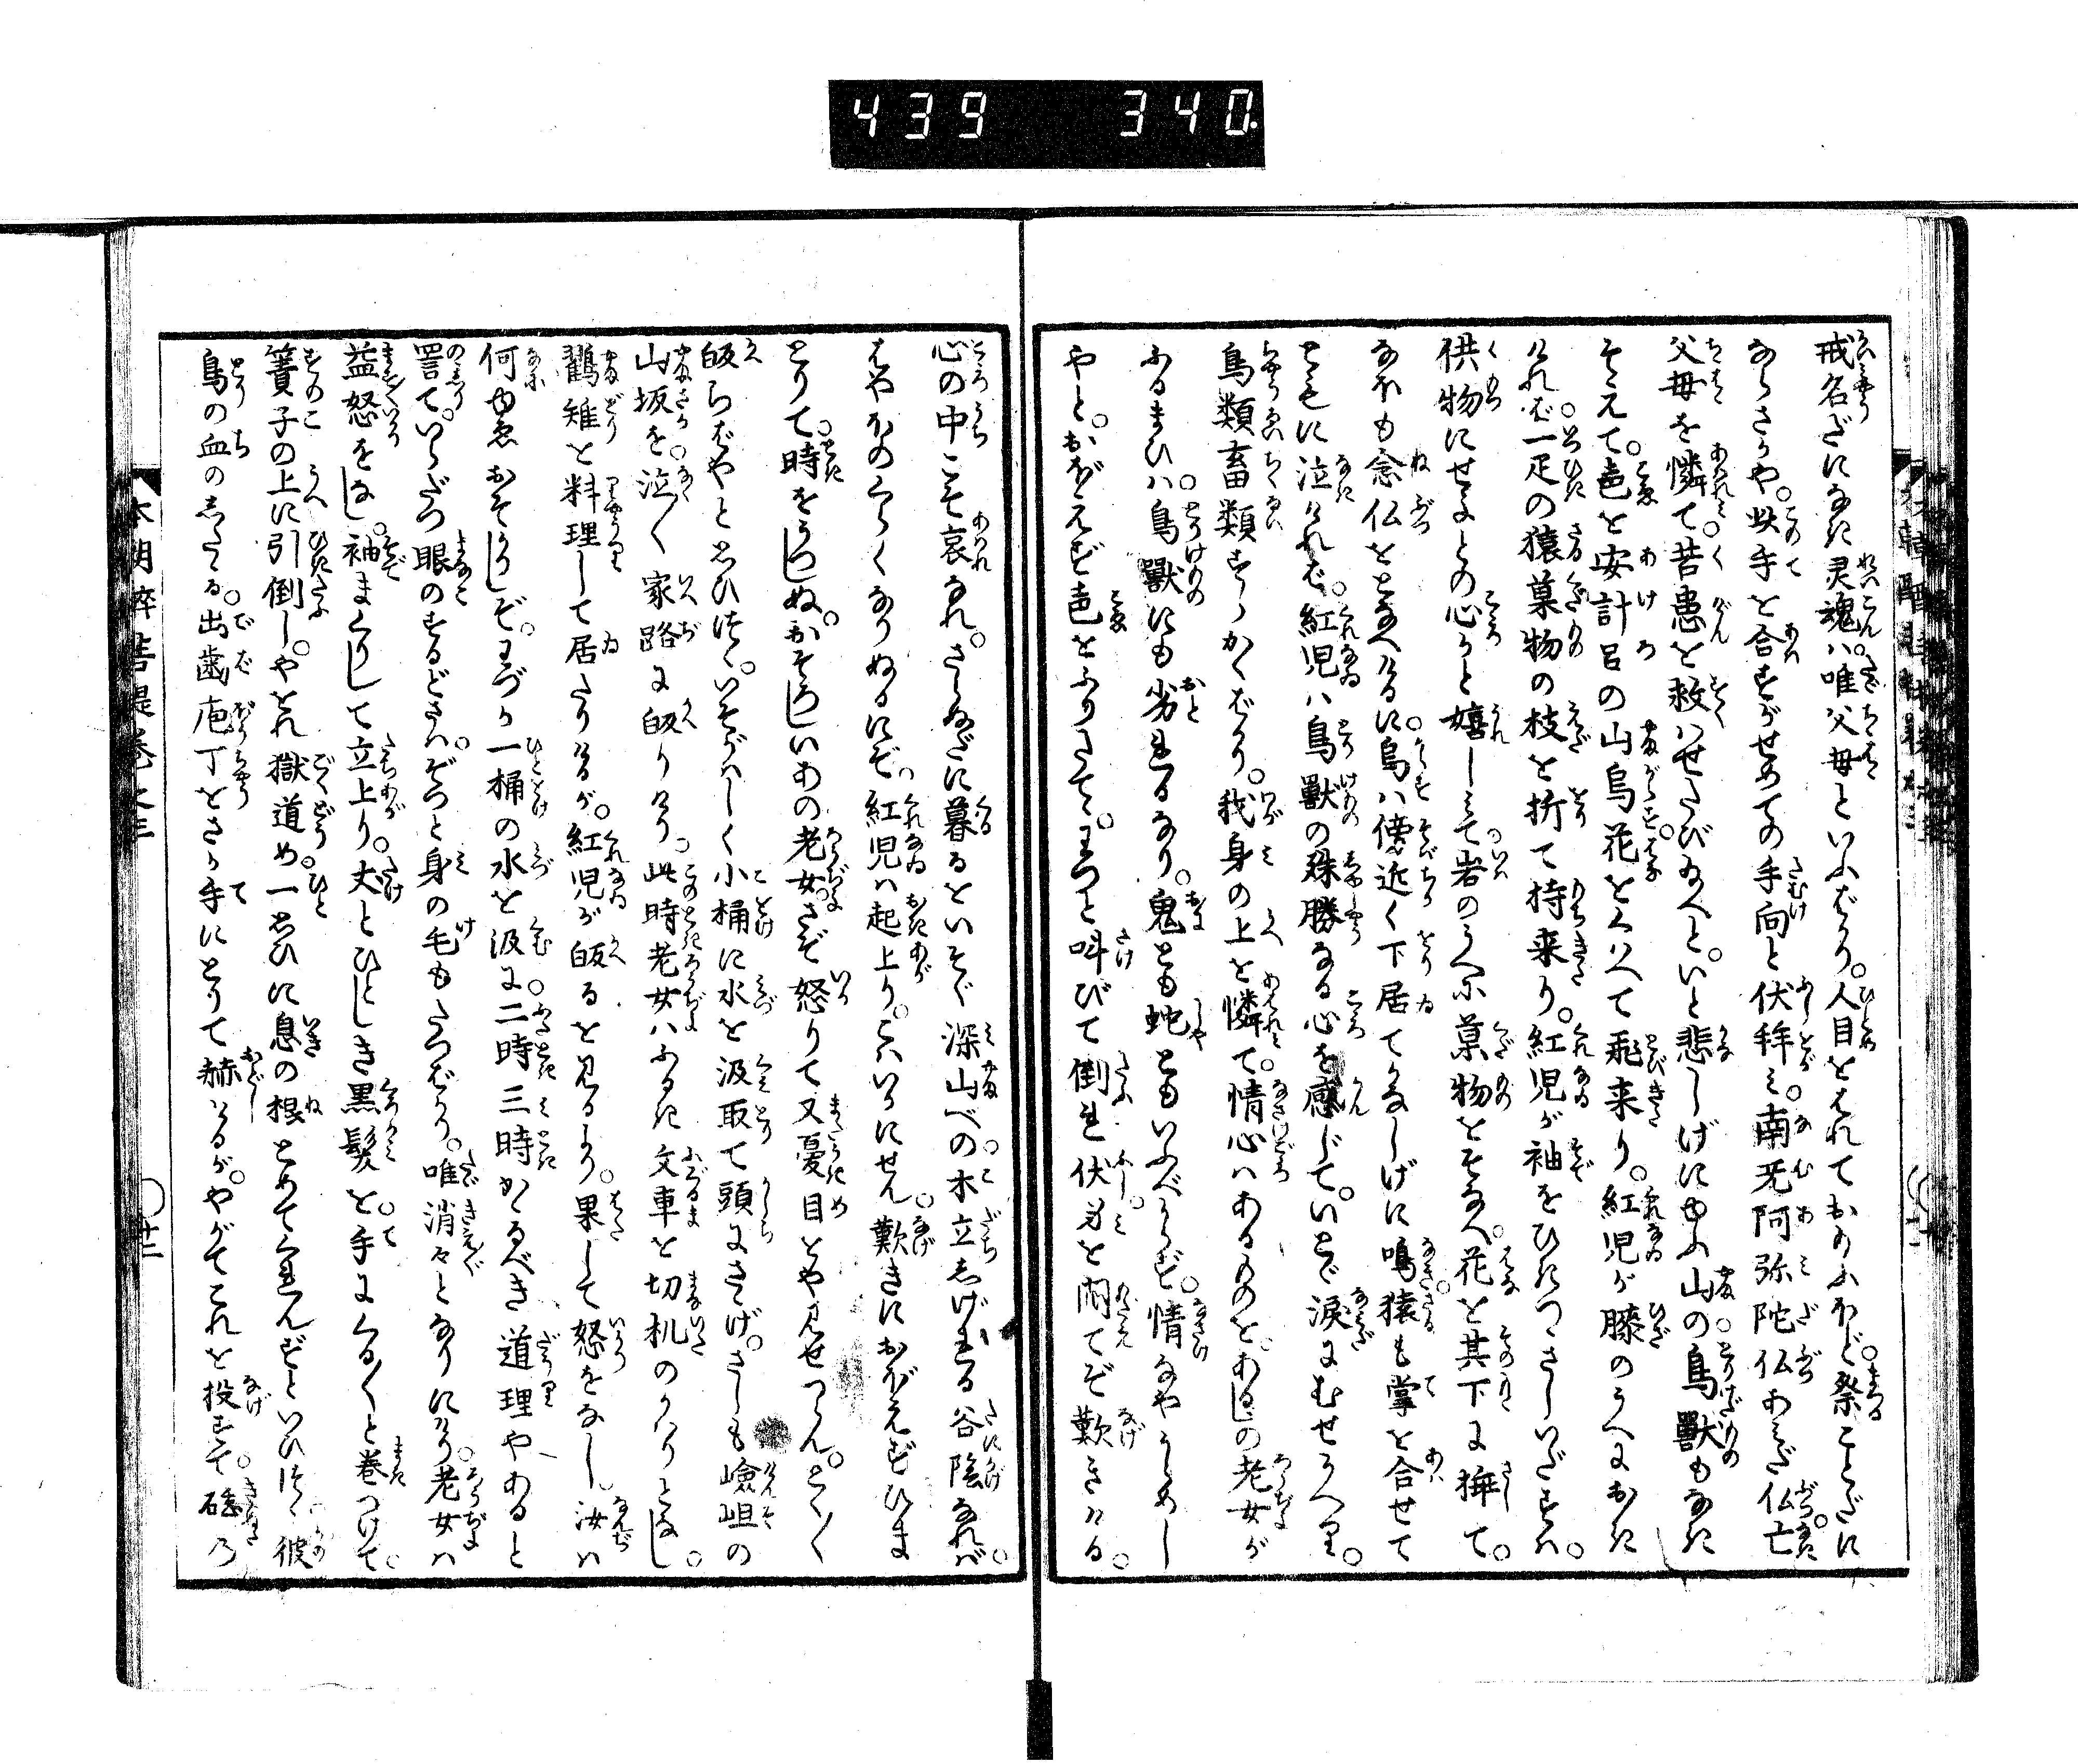 439 340
戒名だになき灵魂は唯父母といふばかり。人目をはれておのふほど。祭ことだに
ならさりや。此手を合すがせめての手向と伏拝み。南无阿弥陀仏あみだ仏亡
父母を憐て。苦患を救はせたび給へと。いと悲しげにゆふ山の。鳥獣もなき
そえて。声を安計呂の山烏花をくはへて飛来り。紅児が膝のうへにおき
ければ。一疋の猿菓物の枝を折て持来り。紅児が袖をひきつゝさしいだすは。
供物にせよとの心かと嬉しくて。岩のうへに菓物をそなへ。花を其下に挿て。
なほも念仏をとなへけるに。烏は傍近く下居てかなしげに鳴。猿も掌を合せて
ともに泣ければ。紅児は鳥獣の殊勝なる心を感じて。いとゞ涙にむせかへり。
鳥類畜類すらかくばかり。我身の上を憐て。情心はあるものを。あるじの老女が
ふるまひは。鳥獣にも劣るなり。鬼とも蛇ともいふべからず。情なやうらめし
やと。おぼえず声をふりたてゝ。わつと叫びて倒れ伏身を悶てぞ歎きける。
心の中こそ哀なれ。さらぬだに暮るといそぐ深山べの。木立しげれる谷陰なれば。
はやほのくらくなりぬるにぞ。紅児は起上り。こはいかにせん。歎きにおぼえずひま
とりて。時をうつしぬ。おそろしいあの老女。さぞ怒りて又憂目をや見せつらん。とく〱
皈らばやと思ひつゝ。いそがはしく小桶に水を汲取て頭にさゝげ。さしも嶮岨の
山坂を。泣〱家路に皈りけり。此時老女はふるき文車を切机のかはりとなし。
鸐雉を料理して居たりけるが。紅児が皈るを見るより。果して怒をなし。汝は
何ゆゑおそかりしぞ。わづか一桶の水を汲に。二時三時かゝるべき道理やあると
詈て。いらだつ眼のするどさは。ぞつと身の毛もたつばかり。唯消々となりにけり。老女は
益怒をなし。袖まくりして立上り。丈とひとしき黒髪を。手にくる〱と巻つけて。
簀子の上に引倒し。やをれ獄道め。一思ひに息の根とめてくれんずといひつゝ。彼
鳥の血のしたゝる。出歯庖丁をさか手にとりて赫けるが。やがてこれを投すて。碪乃
本朝酔菩提巻之三
〇廿二